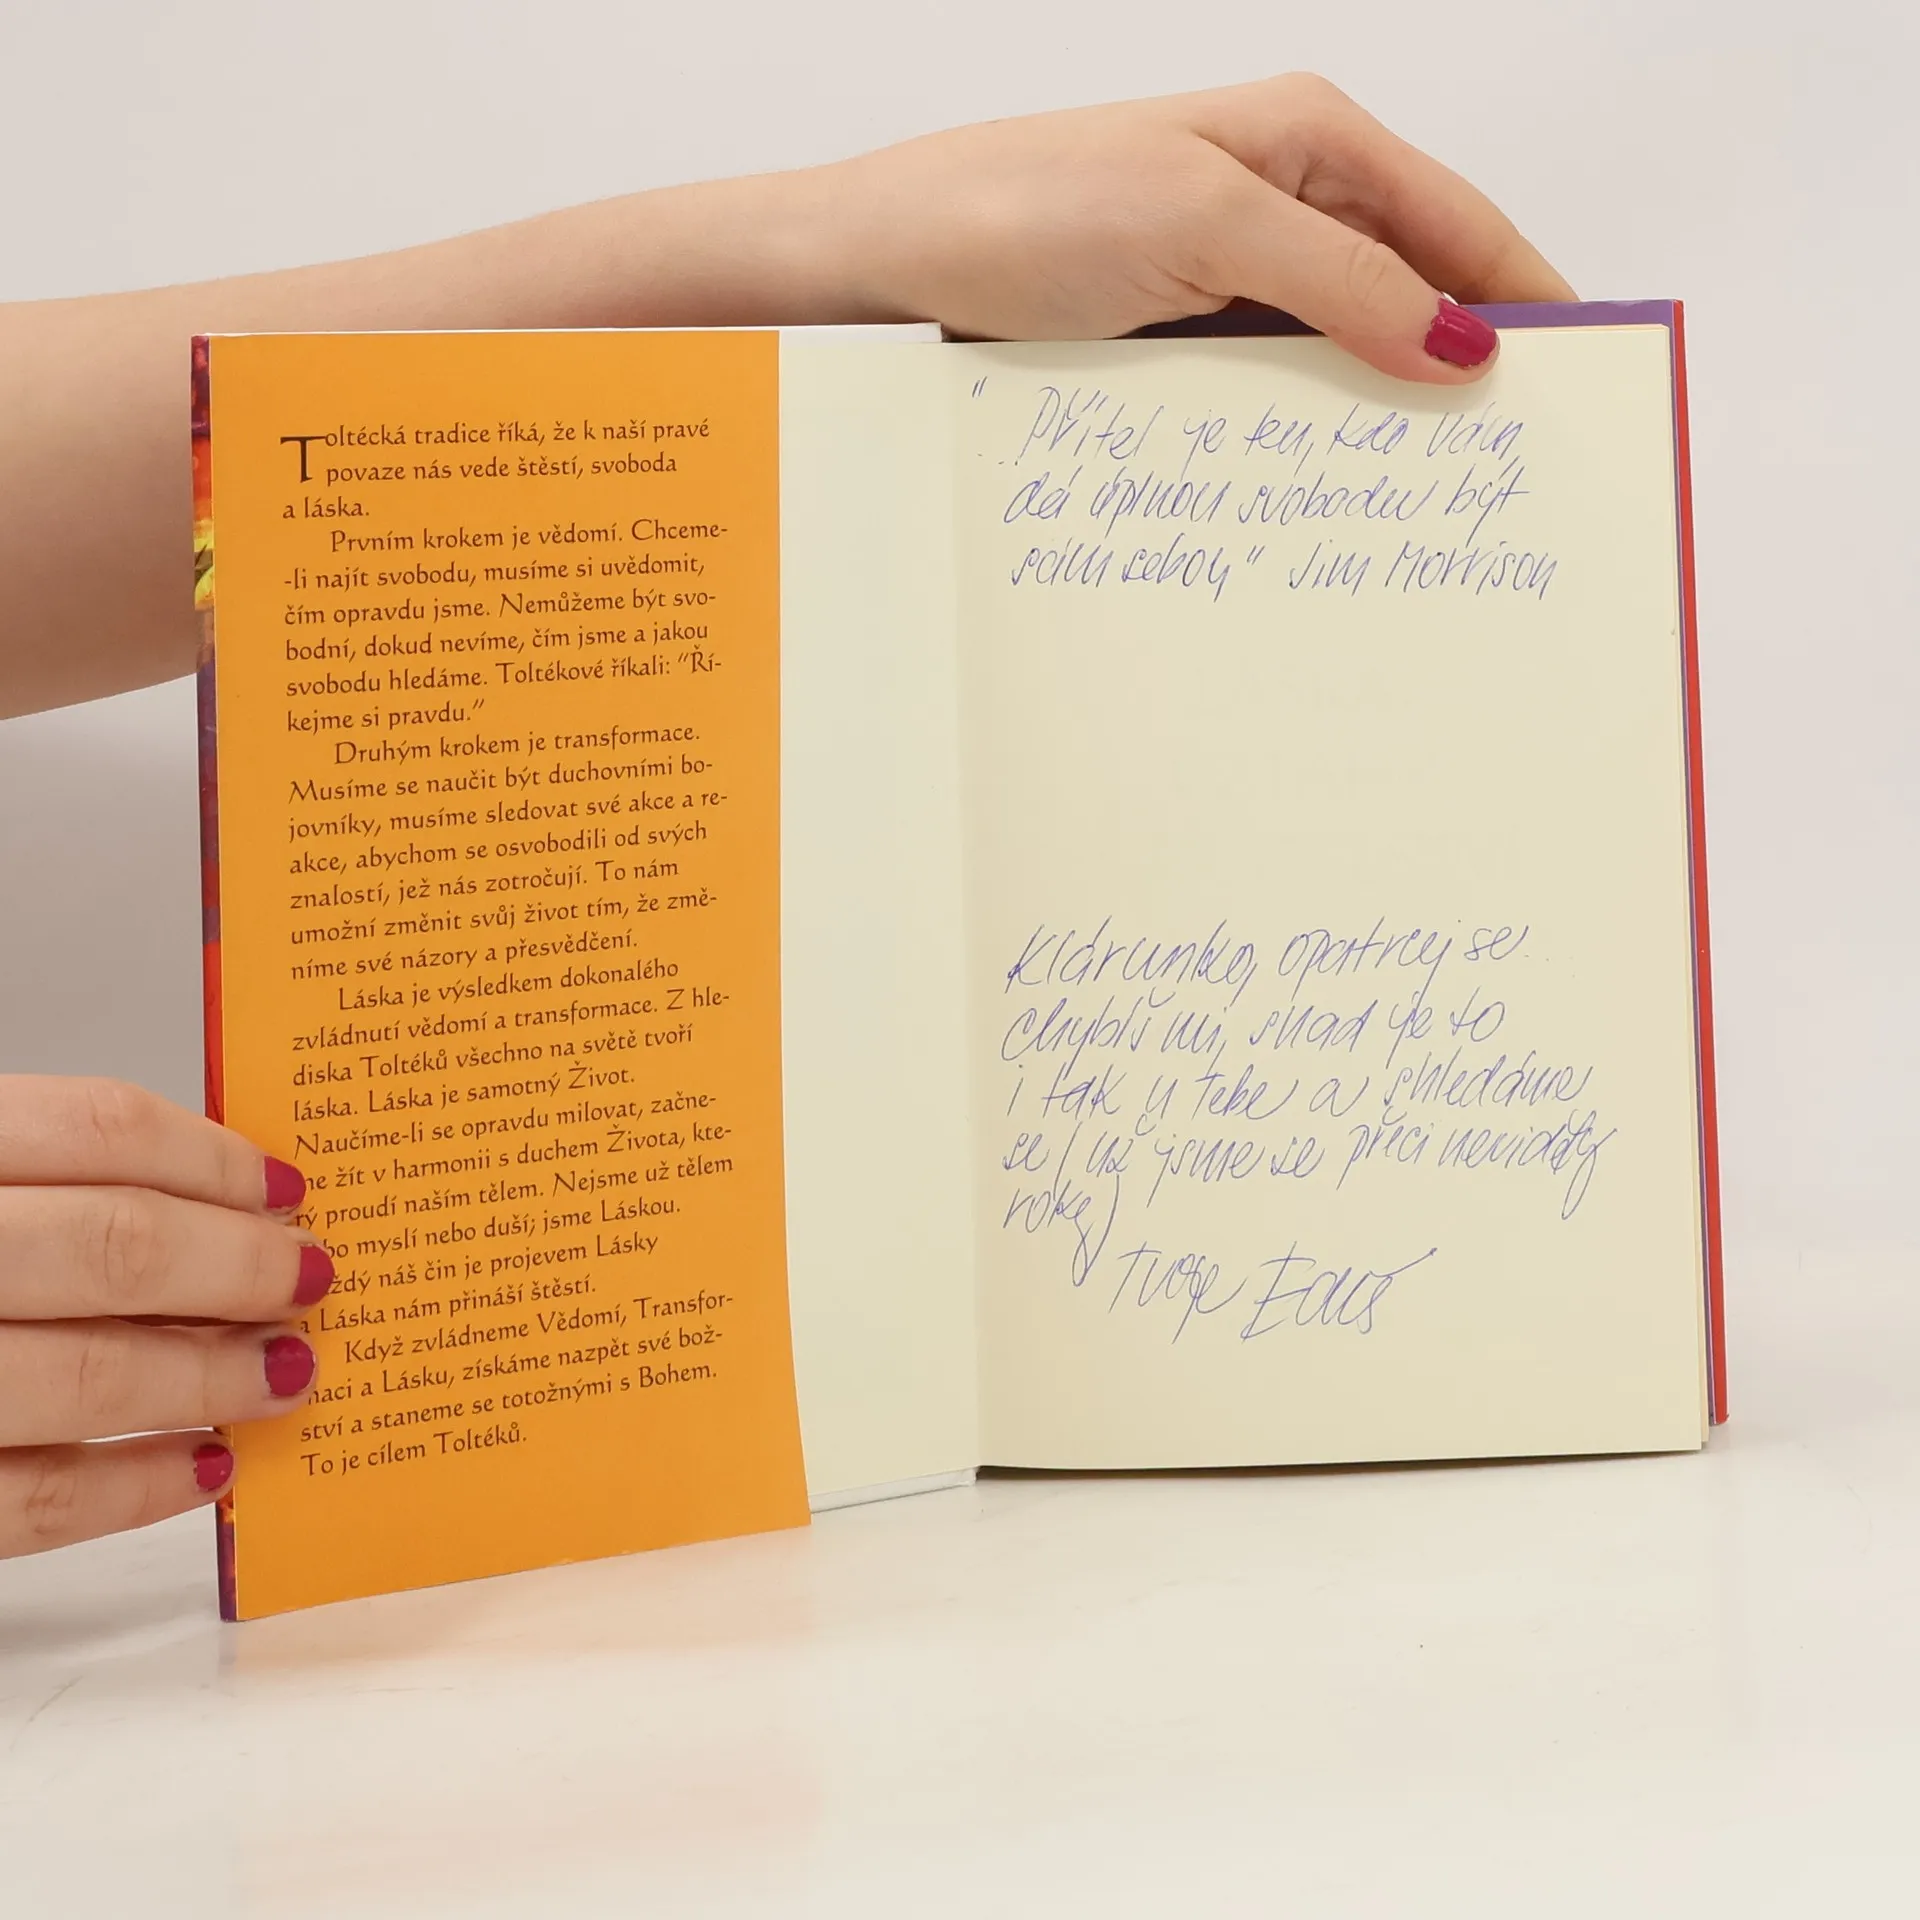 Toltécká tradice říká, že k naší pravé
povaze nás vede štěstí, svoboda
a láska.
Prvním krokem je vědomí. Chceme-
-li najít svobodu, musíme si uvědomit,
čím opravdu jsme. Nemůžeme být svo-
bodní, dokud nevíme, čím jsme a jakou
svobodu hledáme. Toltékové říkali: "Ří-
kejme si pravdu."
Druhým krokem je transformace.
Musíme se naučit být duchovními bo-
jovníky, musíme sledovat své akce a re-
akce, abychom se osvobodili od svých
znalostí, jež nás zotročují. To nám
umožní změnit svůj život tím, že změ-
níme své názory a přesvědčení.
Láska je výsledkem dokonalého
zvládnutí vědomí a transformace. Z hle-
diska Toltéků všechno na světě tvoří
láska. Láska je samotný Život.
Naučíme-li se opravdu milovat, začne-
me žít v harmonii s duchem Života, kte-
rý proudí naším tělem. Nejsme už tělem
bo myslí nebo duší; jsme Láskou.
ždý náš čin je projevem Lásky
a Láska nám přináší štěstí.
Když zvládneme Vědomí, Transfor-
maci a Lásku, získáme nazpět své bož-
ství a staneme se totožnými s Bohem.
To je cílem Toltéků.
" Přítel je ten, kdo Vám
dá úplnou svobodu být
sám sebou" Jim Morrison
Klárunko, opatruj se
chybíš mi, snad je to
i tak u Tebe a shledáme
se (už jsme se přeci neviděly
roky)
Tvoje